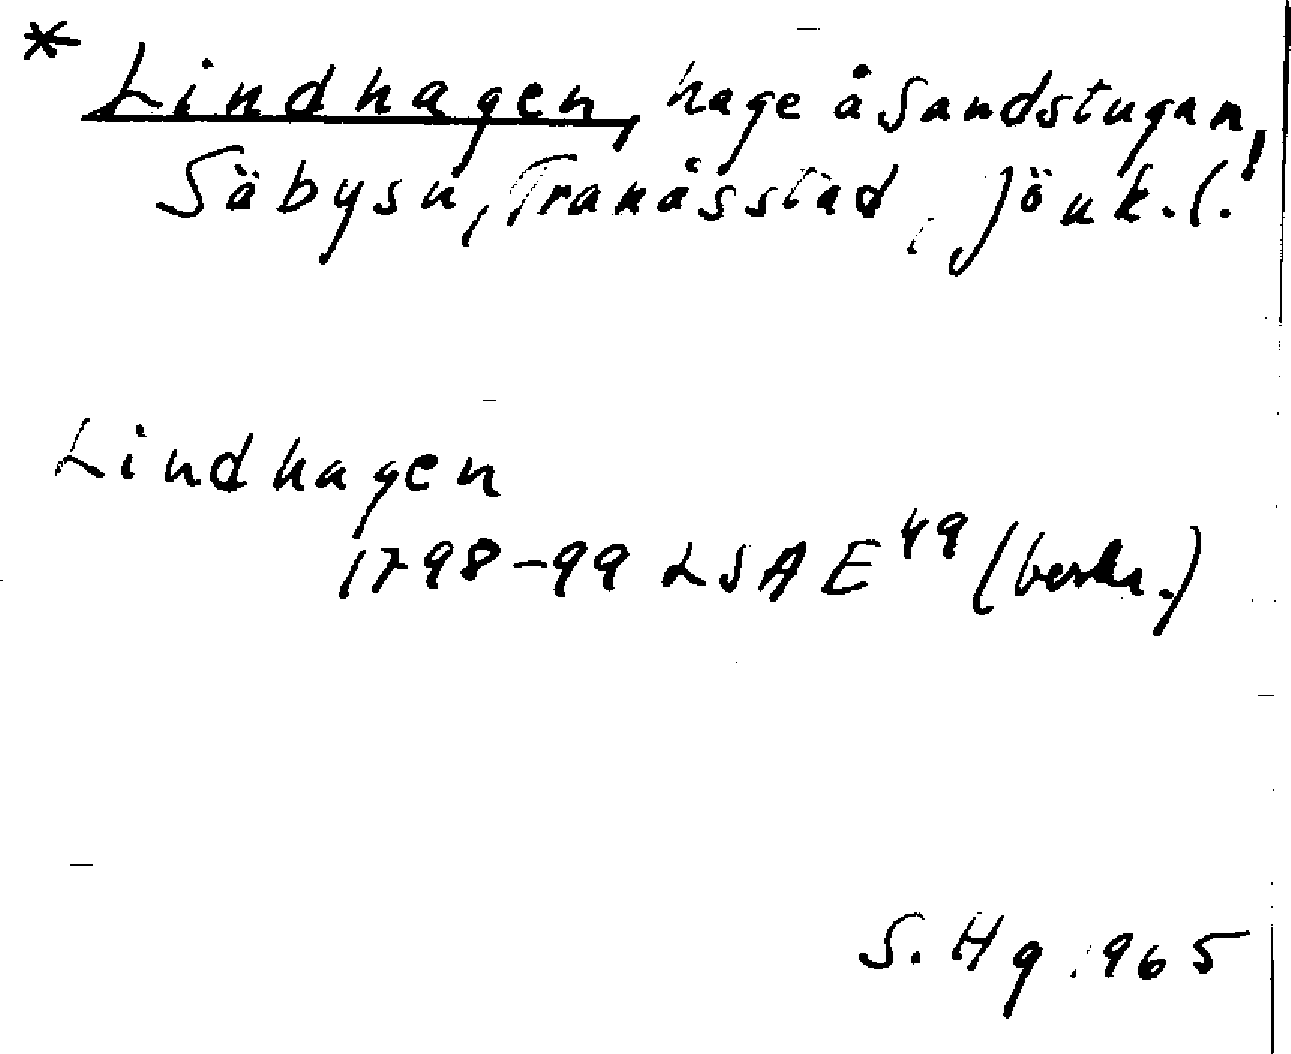 * Lindhagen, hage å Sandstugan,
Säbysn, Tranås stad, Jönk. l.
Lindhagen
1798-99 LSA E 49 (beskr.)
S. Hg. 1965